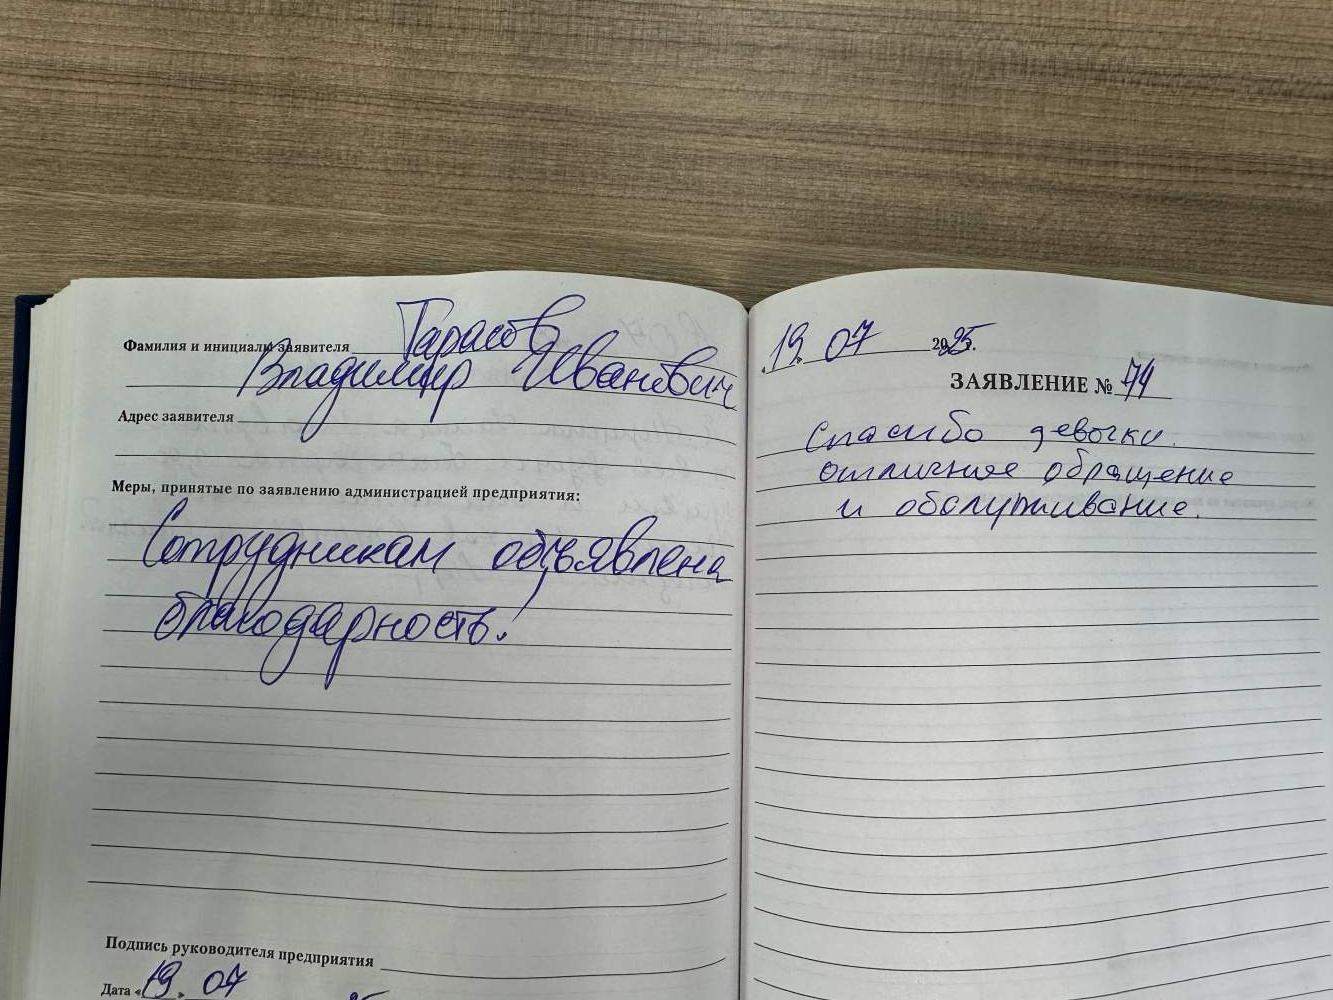 Фамилия и инициалы заявителя Тарасов
Владимир Иванович
Адрес заявителя
Меры, принятые по заявлению администрацией предприятия:
Сотрудникам объявлена
благодарность!
Подпись руководителя предприятия
Дата «19» 07
25
«19» 07 2025 г.
ЗАЯВЛЕНИЕ № 74
Спасибо девочки.
отличное обращение
и обслуживание.